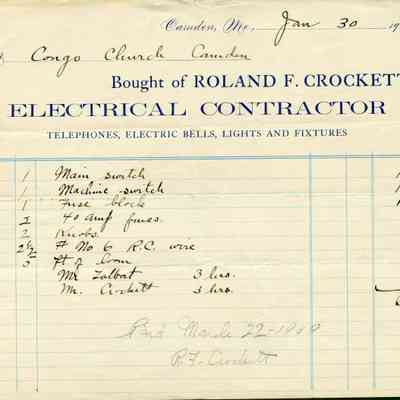 Camden, Me., Jan 30 19
Congo Church Camden
Bought of ROLAND F. CROCKETT
ELECTRICAL CONTRACTOR
TELEPHONES, ELECTRIC BELLS, LIGHTS AND FIXTURES
1 Main switch
1 Machine switch
1 Fuse block
2 40 amp fuses
2 Knobs
2½ Ft No 6 R.C. wire
3 ft of loom
Mr Talbot 3 hrs.
Mr. Crockett 3 hrs.
March 22-1910
R.F. Crockett